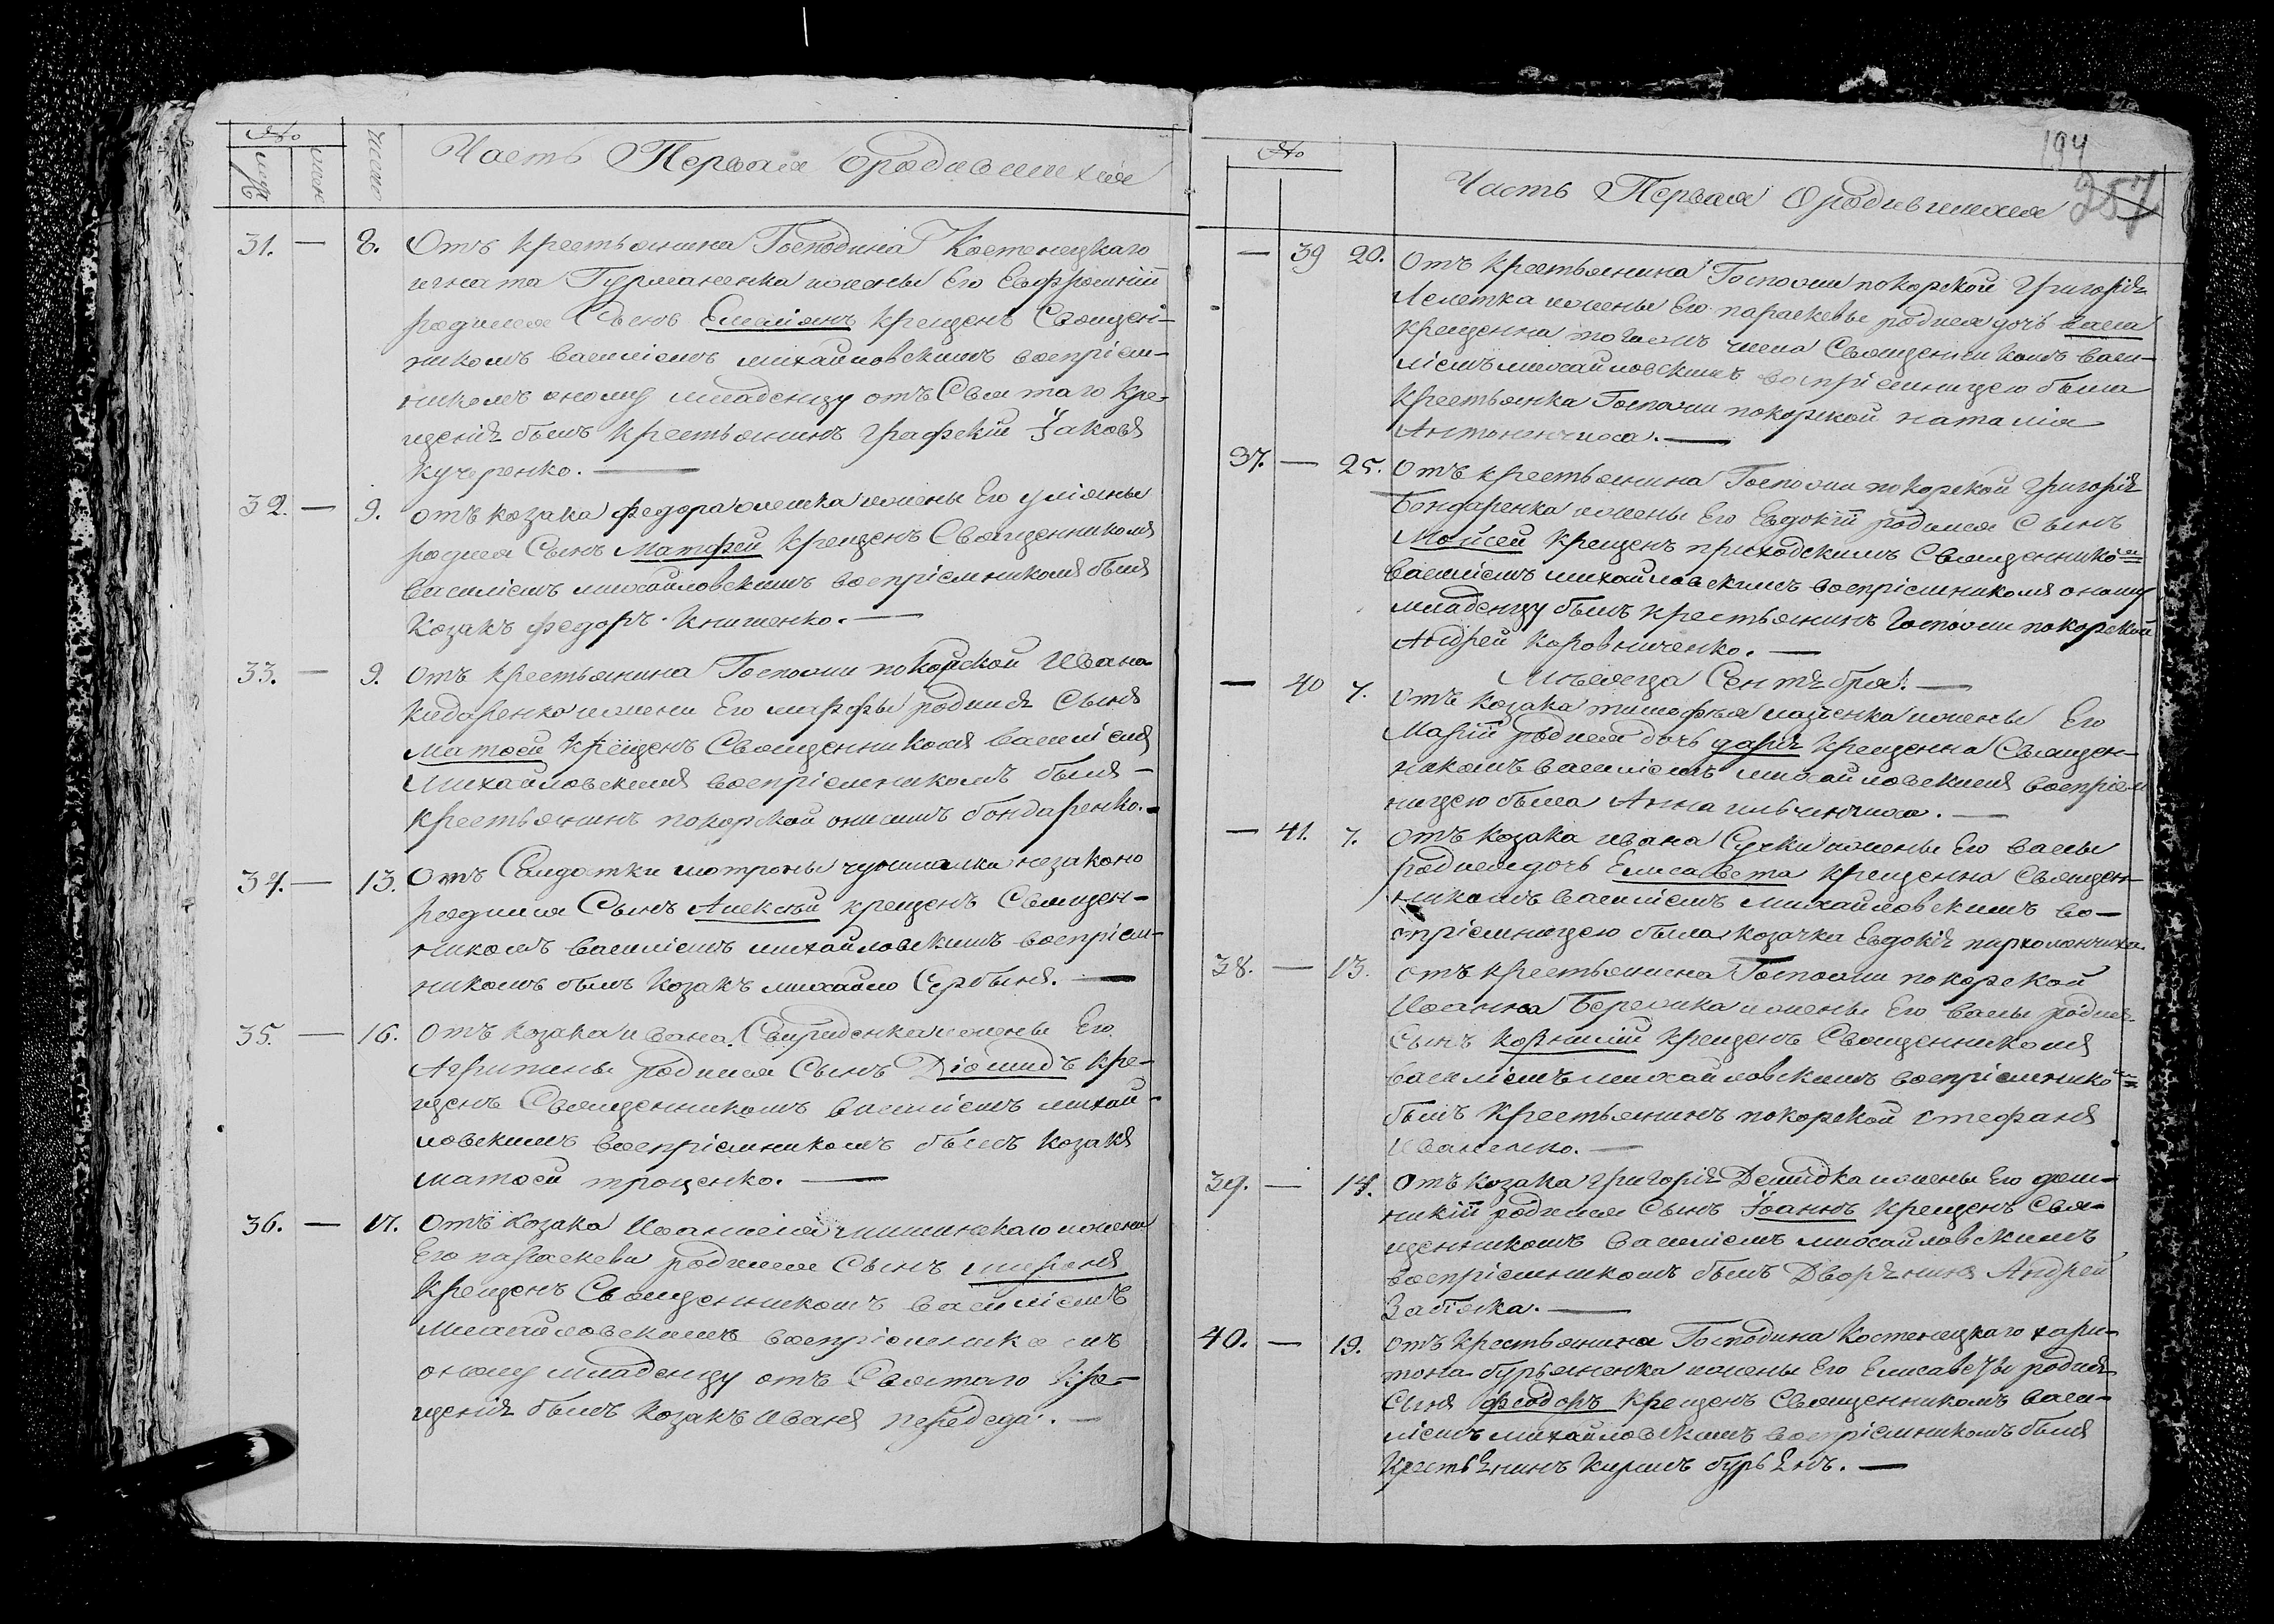 №
муж
жен
Число
Часть Первая Ородившихся
31. — 8. Отъ крестьянина Господина Костенецкаго
игната Гурманенка ижены Его Евфросиніи
родился Сынъ Емеліянъ крещенъ Священ-
никомъ василіемъ михайловскимъ воспріем-
никомъ оному младенцу отъ Святаго кре-
щенія былъ крестьянинъ графскій Яковъ
кучеренко. —
32. — 9. отъ козака федора ижены Его уліяны
родился Сынъ Матфей крещенъ Священникомъ
василіемъ михайловскимъ воспріемникомъ былъ
козакъ федоръ книшенко. —
33. — 9. отъ крестьянина Госпожи покорской Ивана
кидаренка ижени Его марфы родился Сынъ
матфей крещенъ Священникомъ василіемъ
михайловскимъ воспріемникомъ былъ —
крестьянинъ покорской онисимъ бондаренко. —
34. — 13. Отъ Салдатки мотроны незаконо
родился Сынъ Алексѣй крещенъ Священ-
никомъ василіемъ михайловскимъ воспріем-
никомъ былъ козакъ михайло Сербынъ. —
35. — 16. отъ козака ивана Свириденка ижены Его
Агрипины родился Сынъ Діомидъ кре-
щенъ Священникомъ василіемъ михай-
ловскимъ воспріемникомъ былъ козакъ
матвей троценко. —
36. — 17. отъ козака ижены
Его параскеви родился Сынъ миронъ
крещенъ Священникомъ василіемъ
михайловскимъ воспріемникомъ
оному младенцу отъ Святаго Кре-
щенія былъ козакъ иванъ передеда. —
194
257
№
Часть Первая Ородившихся
— 39 20. отъ крестьянина Госпожи покорской григорія
ижены Его параскевы родися дочь
крещенна того жъ числа Священникомъ васи-
ліемъ михайловскимъ воспріемницею была
крестьянка Госпожи покорской наталія
Антоненчиха. —
37. — 25. отъ крестьянина Госпожи покорской григорія
Бондаренка ижены Его Евдокіи родился Сынъ
Мойсей крещенъ приходскимъ Священникомъ
василіемъ михайловскимъ воспріемникомъ оному
младенцу былъ крестьянинъ Госпожи покорской
Андрей коровниченко. —
Мѣсяца Сентября. —
— 40 7. отъ козака тимофея ижены Его
Маріи родися дочь дарія крещенна Священ-
никомъ василіемъ михайловскимъ воспріем
ницею была Анна ильинчиха. —
— 41. 7. отъ козака ивана Сучки ижены Его васы
родися дочь Елисавета крещенна Священ-
никомъ василіемъ михайловскимъ во-
спріемницею была козачка Евдокія пархоменчиха
38. — 13. отъ крестьянина Госпожи покорской
Иоанна ижены Его васы родился
Сынъ корнилій крещенъ Священникомъ
василіемъ михайловскимъ воспріемникомъ
былъ крестьянинъ покорской стефанъ
Иваненко. —
39. — 14. отъ козака григорія Демидка ижены Его дом-
никіи родился Сынъ Іоаннъ крещенъ Свя-
щенникомъ василіемъ михайловскимъ
воспріемникомъ былъ Дворянинъ Андрей
Забіяка. —
40. — 19. отъ крестьянина Господина Костенецкаго хари-
тона бурьяненка ижены Его Елисаветы родился
Сынъ феодоръ крещенъ Священникомъ васи-
ліемъ михайловскимъ воспріемникомъ былъ
крестьянинъ кирилъ бурьянъ. —